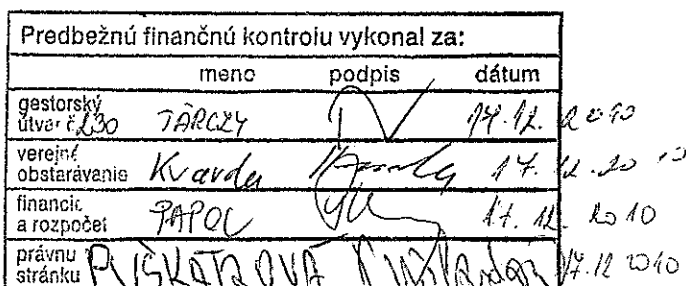 Predbežnú finančnú kontrolu vykonal za:
meno podpis dátum
gestorský
útvar č. 230 TÁRCZY 17.12. 2010
verejné
obstarávanie Kvarda 17.12.2010
financie
a rozpočet PAPOL 17.12. 2010
právnu
stránku PUŠKÁROVÁ 17.12 2010